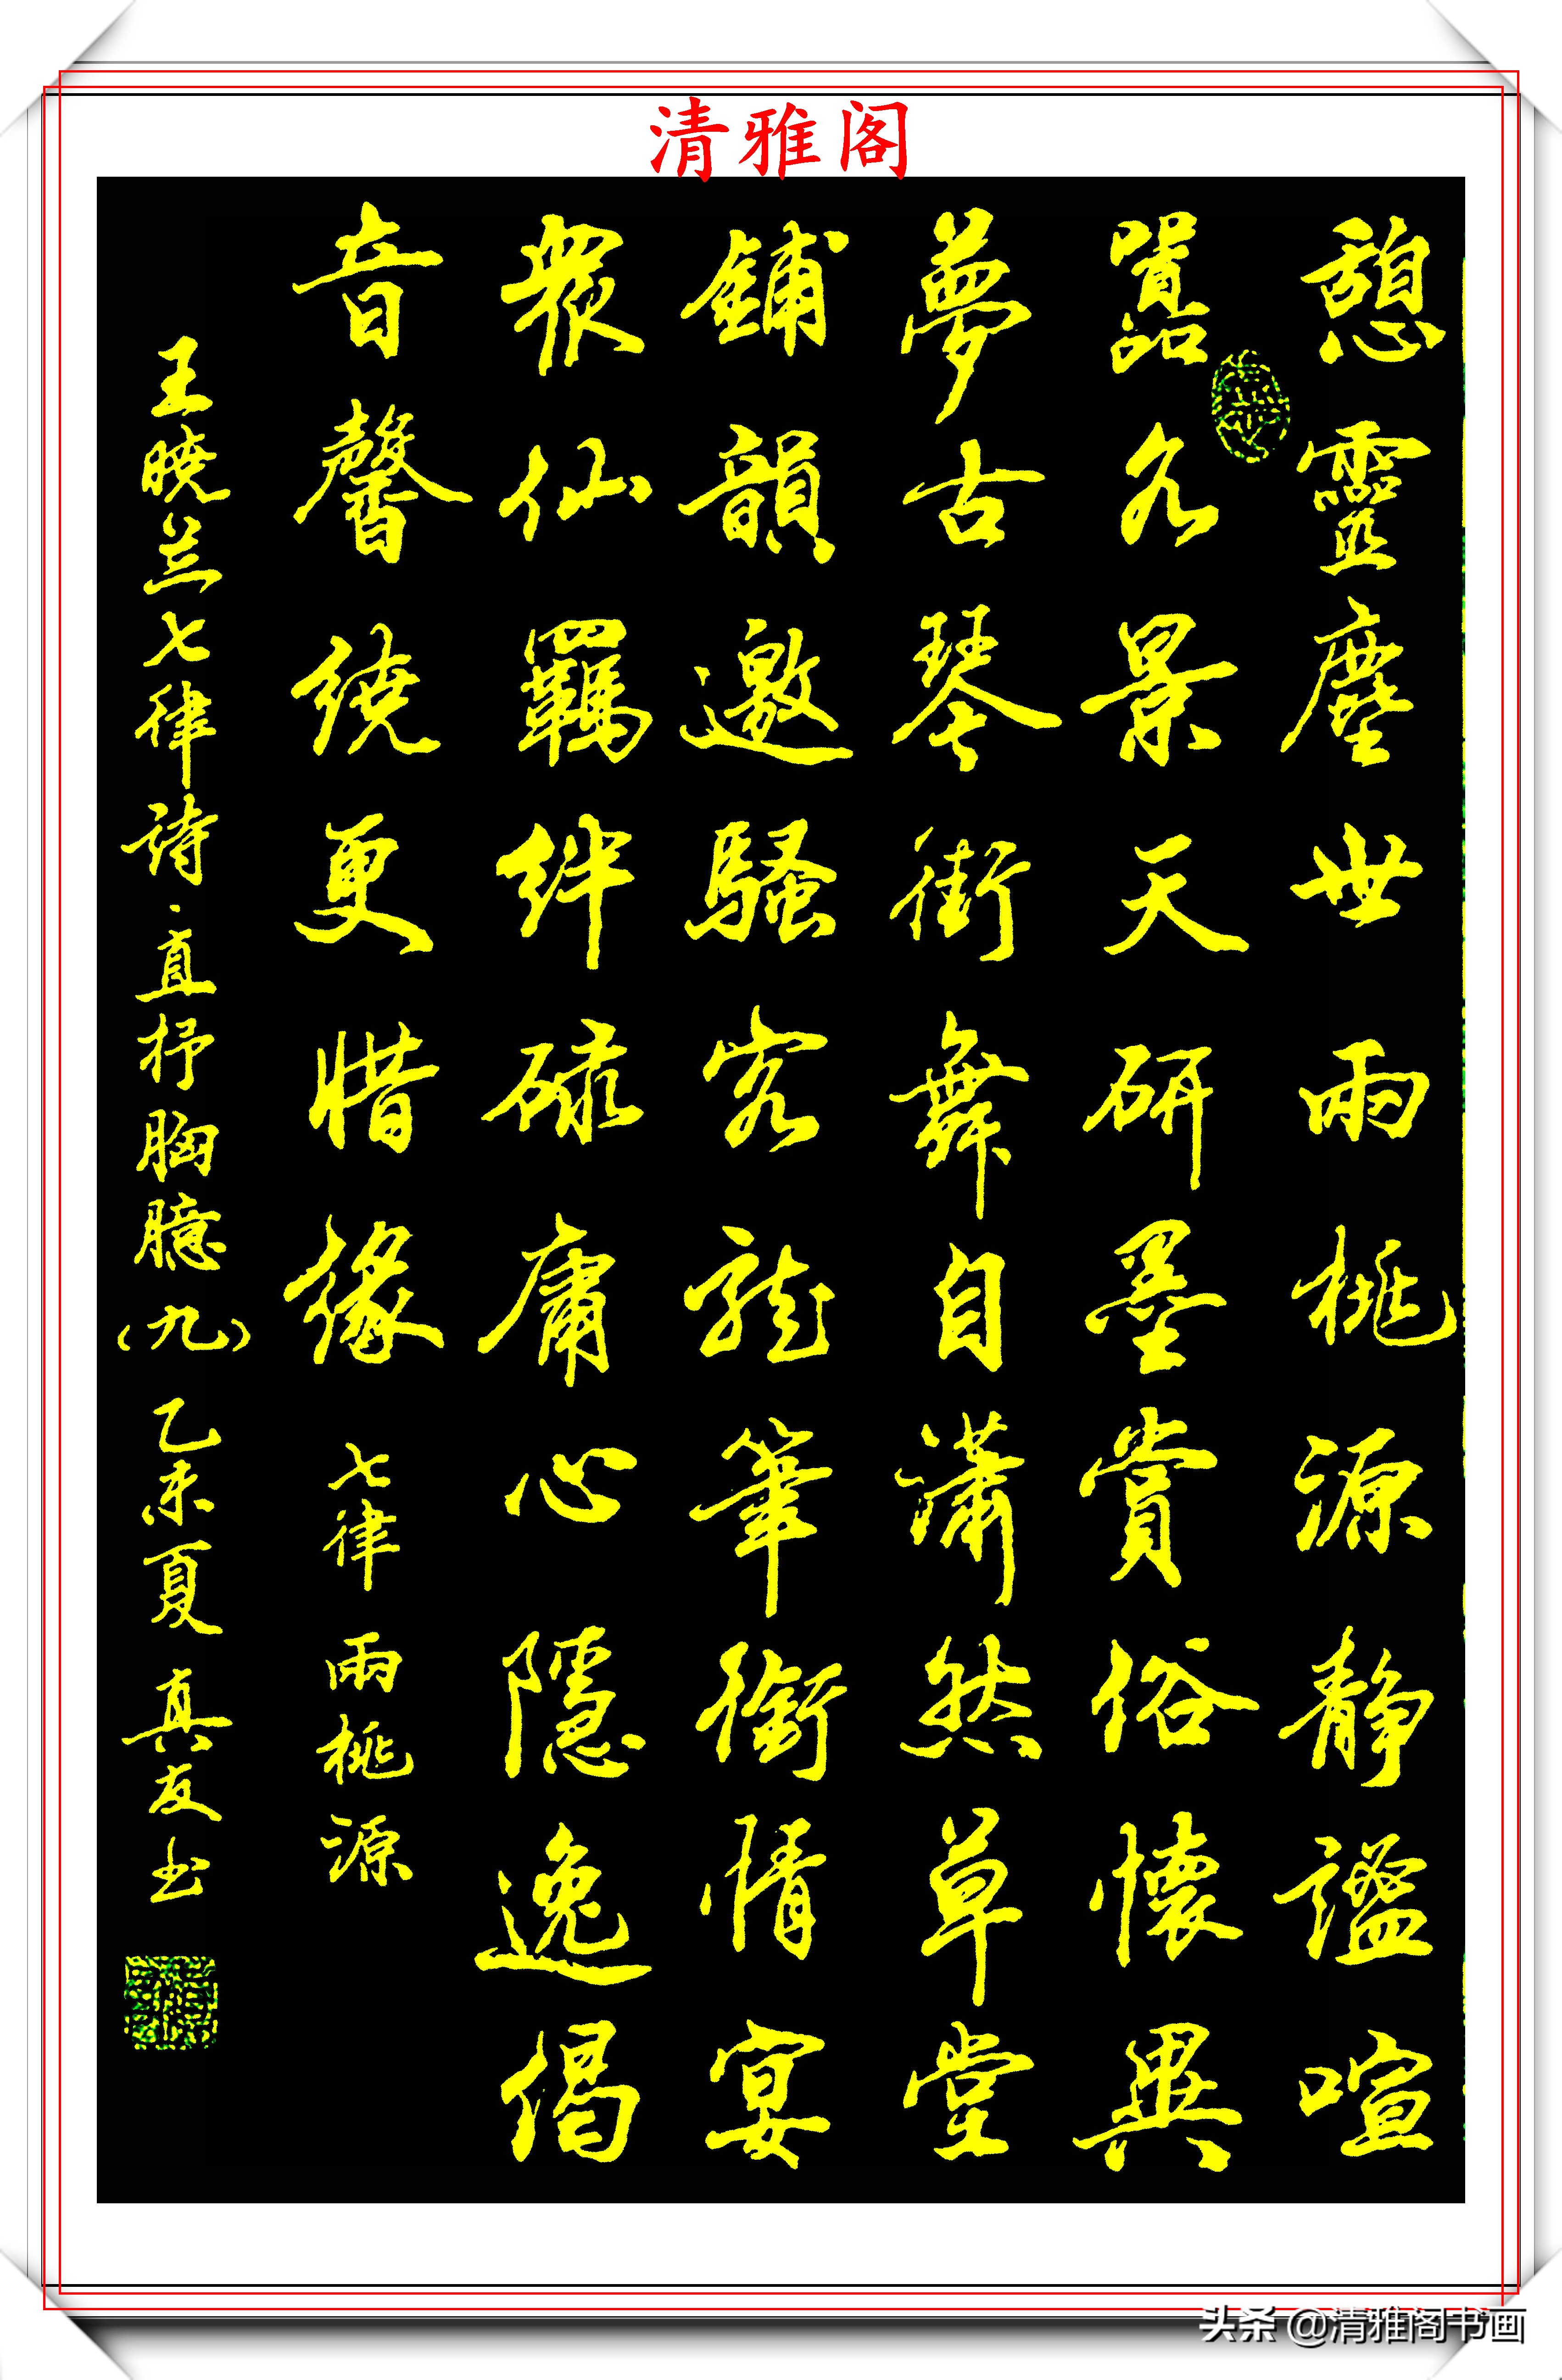 清雅阁
憩靈塵世雨桃源静謐喧
囂各景天研墨賞俗懷異
夢古琴街舞自瀟然草堂
鋪韻邀騷客龍筆銜情宴
衆仙羈絆碌庸心隱逸偈
音馨繞更惜緣 七律 雨桃源
王晓兰七律诗·直抒胸臆（九） 乙未夏 真友书
头条 @清雅阁书画